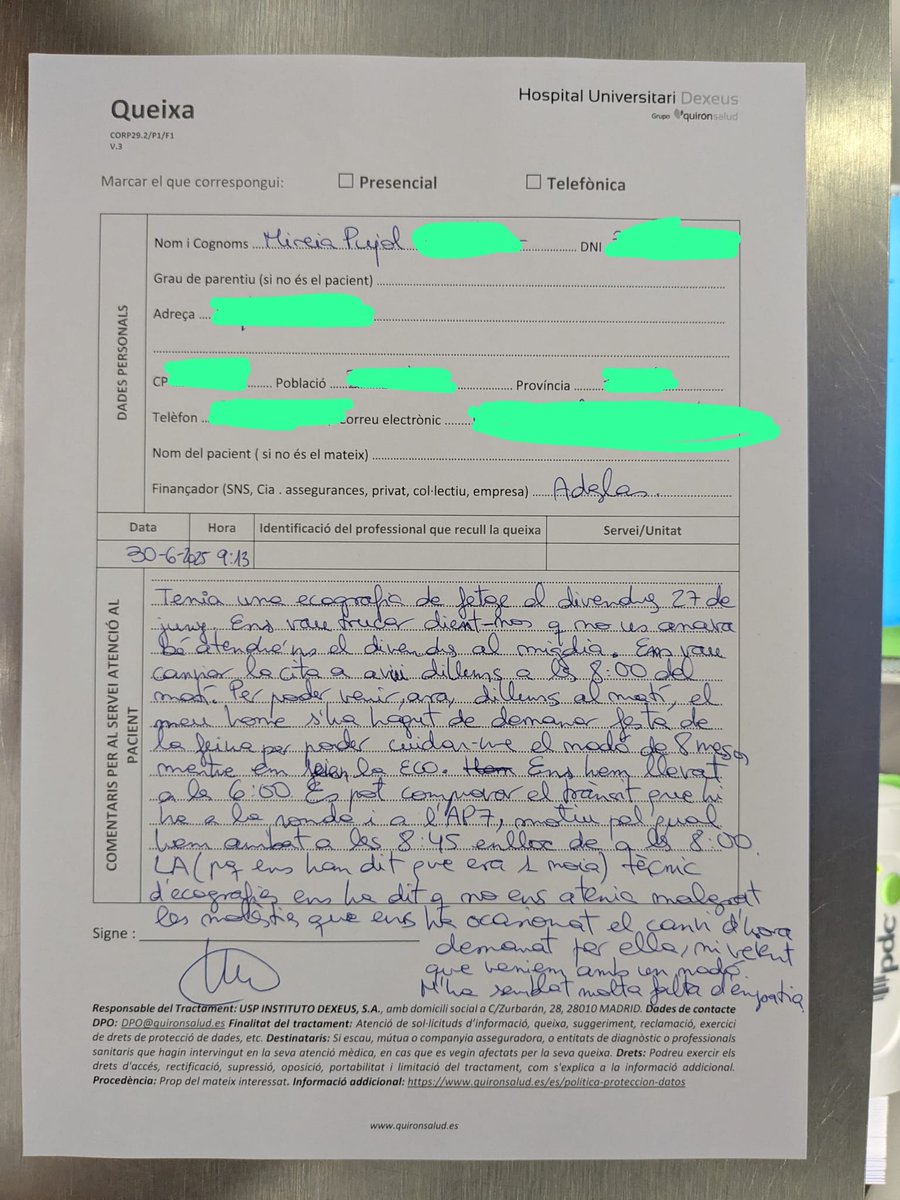 Queixa
Hospital Universitari Dexeus
Grupo quironsalud
CORP29.2/P1/F1
V.3
Marcar el que correspongui: Presencial Telefònica
DADES PERSONALS
Nom i Cognoms Mireia Pujol DNI
Grau de parentiu (si no és el pacient)
Adreça
CP Població Província
Telèfon orreu electrònic
Nom del pacient ( si no és el mateix)
Finançador (SNS, Cia . assegurances, privat, col·lectiu, empresa) Adeslas.
Data Hora Identificació del professional que recull la queixa Servei/Unitat
30-6-2025 9:13
COMENTARIS PER AL SERVEI ATENCIÓ AL PACIENT
Tenia una ecografia de fetge el divendres 27 de
juny. Ens vau trucar dient-nos q no us anava
bé atendre'ns el divendres al migdia. Ens vau
canviar la cita a avui dilluns a les 8:00 del
matí. Per poder venir, ara, dilluns al matí, el
meu home s'ha hagut de demanar festa de
la feina per poder cuidar-me el nadó de 8 mesos
mentre em feien la eco. Ens hem llevat
a les 6:00. Es pot comprovar el trànsit que hi
ha a la ronda i a l'AP7, motiu pel qual
hem arribat a les 8:45 enlloc de a les 8:00.
LA (pq ens han dit que era 1 noia) tècnic
d'ecografies ens ha dit q no ens atenia malgrat
les molèsties que ens ha ocasionat el canvi d'hora
demanat per ella, ni veient
que veniem amb un nadó.
M'ha semblat molta falta d'empatia
Signe :
Responsable del Tractament: USP INSTITUTO DEXEUS, S.A., amb domicili social a C/Zurbarán, 28, 28010 MADRID. Dades de contacte
DPO: DPO@quironsalud.es Finalitat del tractament: Atenció de sol·licituds d'informació, queixa, suggeriment, reclamació, exercici
de drets de protecció de dades, etc. Destinataris: Si escau, mútua o companyia asseguradora, o entitats de diagnòstic o professionals
sanitaris que hagin intervingut en la seva atenció mèdica, en cas que es vegin afectats per la seva queixa. Drets: Podreu exercir els
drets d'accés, rectificació, supressió, oposició, portabilitat i limitació del tractament, com s'explica a la informació addicional.
Procedència: Prop del mateix interessat. Informació addicional: https://www.quironsalud.es/es/politica-proteccion-datos
www.quironsalud.es
pdc